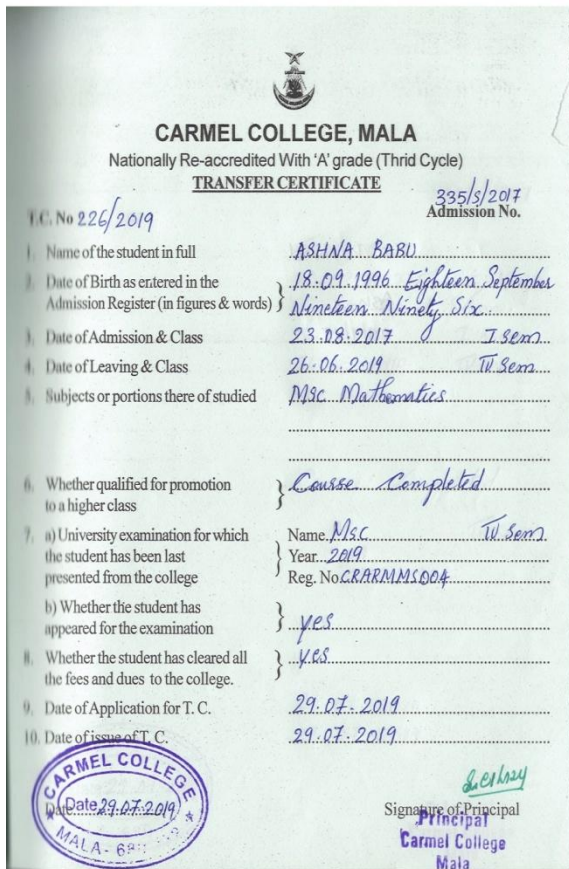 CARMEL COLLEGE, MALA
Nationally Re-accredited With 'A' grade (Thrid Cycle)
TRANSFER CERTIFICATE
T.C. No 226/2019
335/S/2017
Admission No.
1. Name of the student in full ASHNA BABU
2. Date of Birth as entered in the 18.09.1996 Eighteen September
Admission Register (in figures & words) Nineteen Ninety Six
3. Date of Admission & Class 23.08.2017 I Sem
4. Date of Leaving & Class 26.06.2019 IV Sem
5. Subjects or portions there of studied MSc Mathematics
6. Whether qualified for promotion Course Completed
to a higher class
7. a) University examination for which Name MSc IV Sem
the student has been last Year 2019
presented from the college Reg. No CRARMMS004
b) Whether the student has
appeared for the examination yes
8. Whether the student has cleared all yes
the fees and dues to the college.
9. Date of Application for T. C. 29.07.2019
10. Date of issue of T. C. 29.07.2019
CARMEL COLLEGE
Date 29.07.2019
MALA
Signature of Principal
Principal
Carmel College
Mala